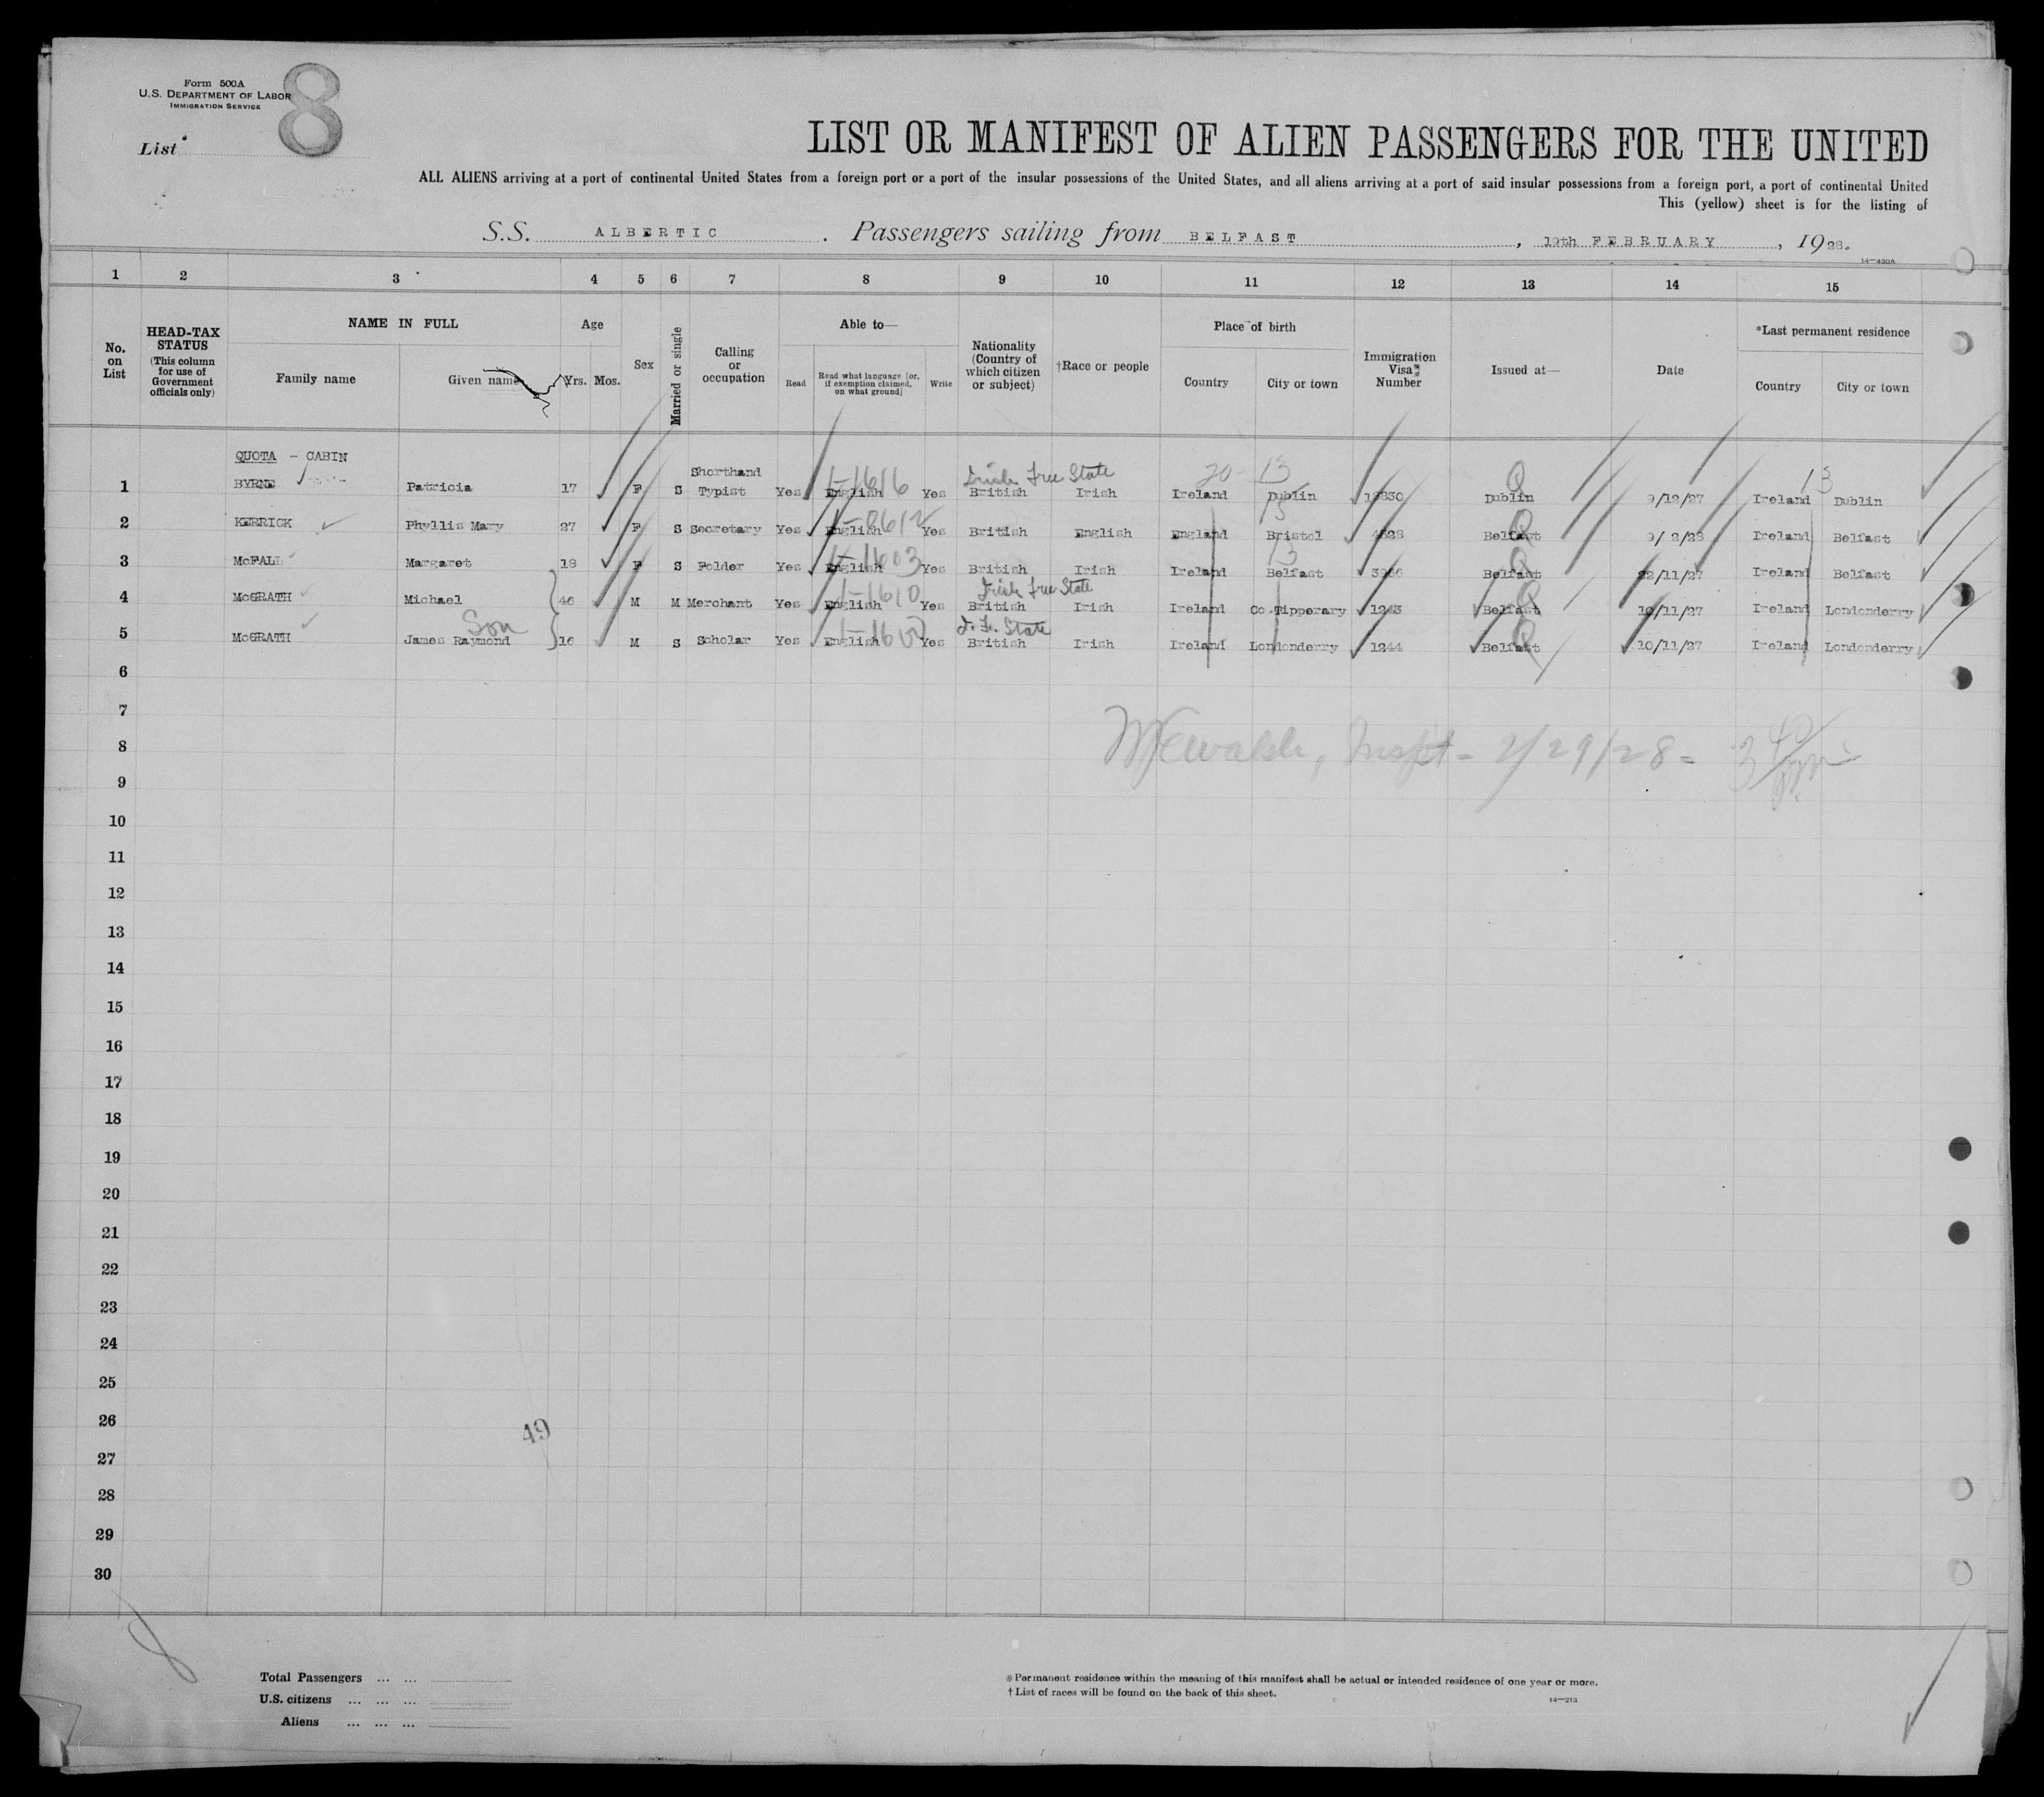 Form 500A
U.S. DEPARTMENT OF LABOR
IMMIGRATION SERVICE
8
List
LIST OR MANIFEST OF ALIEN PASSENGERS FOR THE UNITED
ALL ALIENS arriving at a port of continental United States from a foreign port or a port of the insular possessions of the United States, and all aliens arriving at a port of said insular possessions from a foreign port, a port of continental United
This (yellow) sheet is for the listing of
S.S. ALBERTIC. Passengers sailing from BELFAST, 19th FEBRUARY, 1928.
14—430A
1 2 3 4 5 6 7 8 9 10 11 12 13 14 15
No. on List
HEAD-TAX STATUS (This column for use of Government officials only)
NAME IN FULL
Family name Given name
Age
Yrs. Mos.
Sex
Married or single
Calling or occupation
Able to—
Read Read what language [or, if exemption claimed, on what ground] Write
Nationality (Country of which citizen or subject)
†Race or people
Place of birth
Country City or town
Immigration Visa Number
Issued at—
Date
*Last permanent residence
Country City or town
QUOTA - CABIN
1 BYRNE Patricia 17 F S Shorthand Typist Yes English 1-1616 Yes Irish Free State British Irish 20 - 13 Ireland Dublin Q Dublin 9/12/27 13 Ireland Dublin
2 KERRICK Phyllis Mary 27 F S Secretary Yes English Yes British English England Bristol 4828 Q Belfast 9/ 2/28 Ireland Belfast
3 McFALL Margaret 18 F S Folder Yes English 1-1603 Yes British Irish 13 Ireland Belfast Q Belfast 22/11/27 Ireland Belfast
4 McGRATH Michael 46 M M Merchant Yes English 1-1610 Yes Irish Free State British Irish Ireland Co.Tipperary 1243 Q Belfast 10/11/27 Ireland Londonderry
5 McGRATH Son James Raymond 16 M S Scholar Yes English Yes I. F. State British Irish Ireland Londonderry 1244 Q Belfast 10/11/27 Ireland Londonderry
6
7
8 Inspt - 2/29/28 -
9
10
11
12
13
14
15
16
17
18
19
20
21
22
23
24
25
26
49
27
28
29
30
Total Passengers ... ...
U.S. citizens ... ... ...
Aliens ... ... ...
*Permanent residence within the meaning of this manifest shall be actual or intended residence of one year or more.
†List of races will be found on the back of this sheet.
14—213